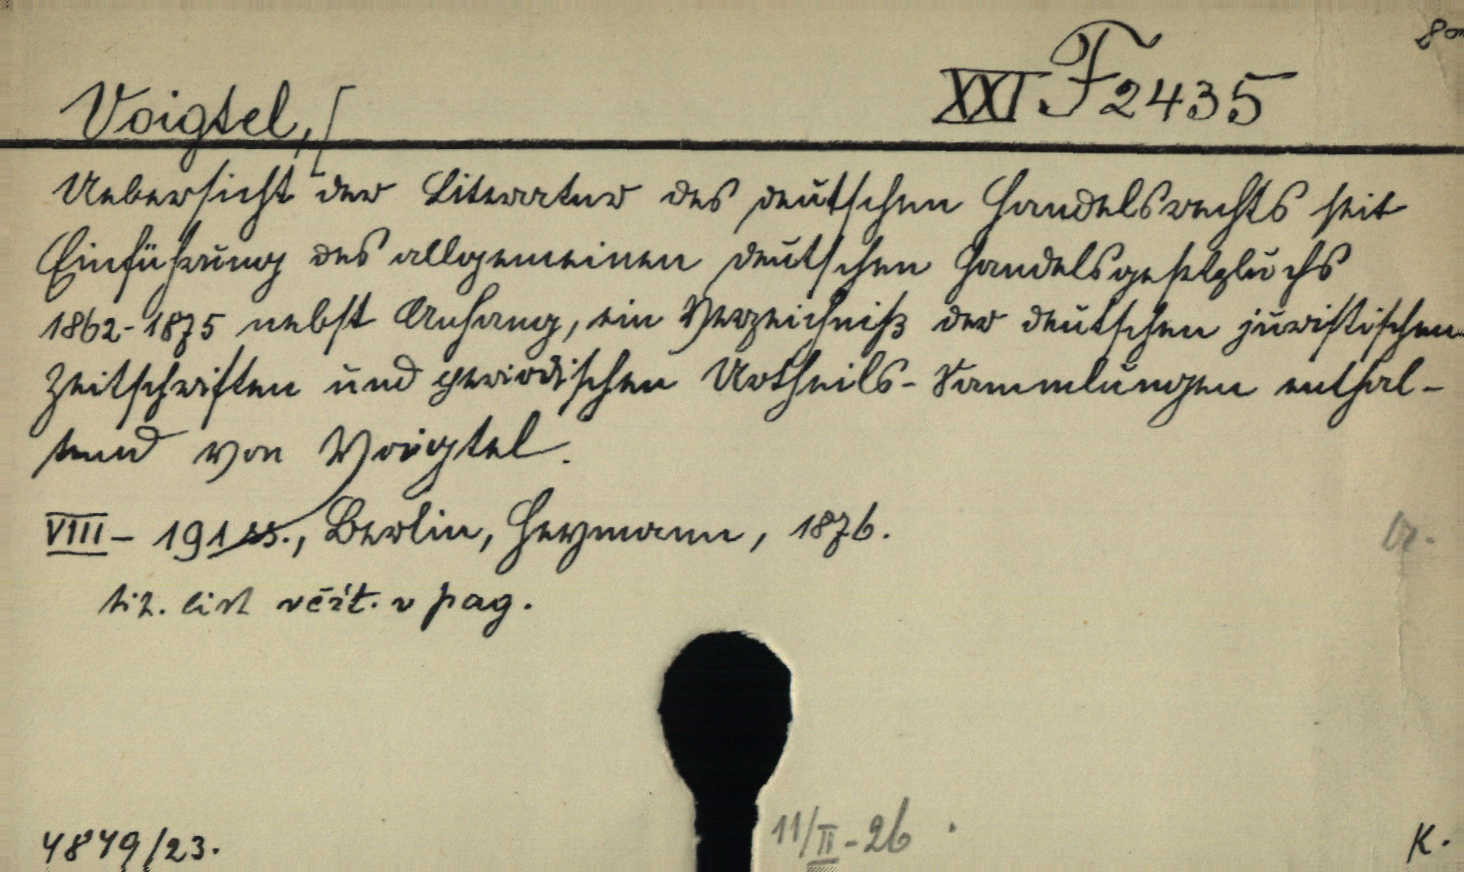 8°
XXI F 2435
Voigtel, [
Uebersicht der Literatur des deutschen Handelsrechts seit
Einführung des allgemeinen deutschen Handelsgesetzbuchs
1862-1875 nebst Anhang, ein Verzeichniß der deutschen juristischen
Zeitschriften und periodischen Urtheils-Sammlungen enthal-
tend von Voigtel.
VIII - 191 ss., Berlin, Heymann, 1876.
tit. list včít. v pag.
4849/23.
11/II - 26
K.